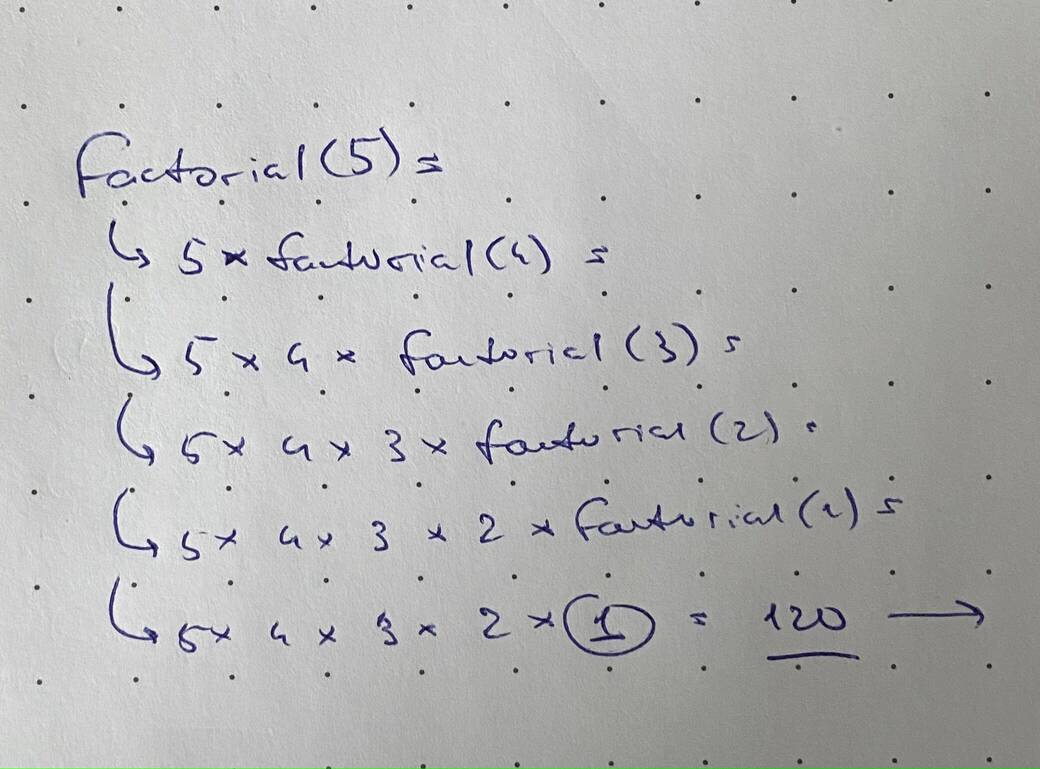 factorial(5) =
↳ 5 × factorial(4) =
↳ 5 × 4 × factorial(3) =
↳ 5 × 4 × 3 × factorial(2) =
↳ 5 × 4 × 3 × 2 × factorial(1) =
↳ 5 × 4 × 3 × 2 × 1 = 120 →